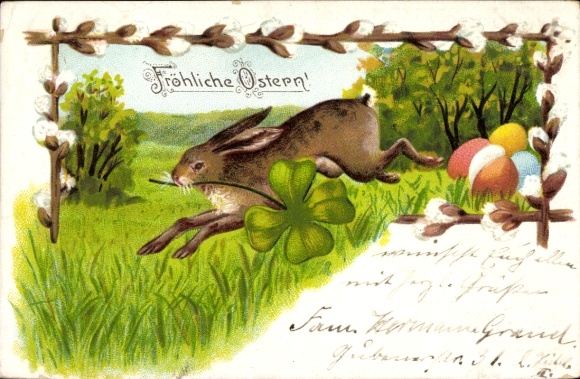 Fröhliche Ostern!
wünscht Euch allen
mit herzl. Grüßen
Fam. Hermann Grand.
Gubenerstr. 31.